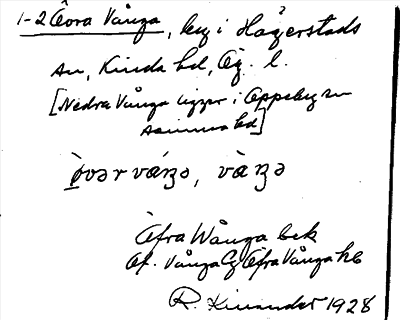 1-2 Övra Vånga, by i Hägerstads
sn, Kinda hd, Ög. l.
[Nedra Vånga ligger i Oppeby sn
samma hd]
òvər váŋə, vàŋə
Öfra Wånga bek
Öf. Vånga Öfra Vånga hb
R. Kinander 1928